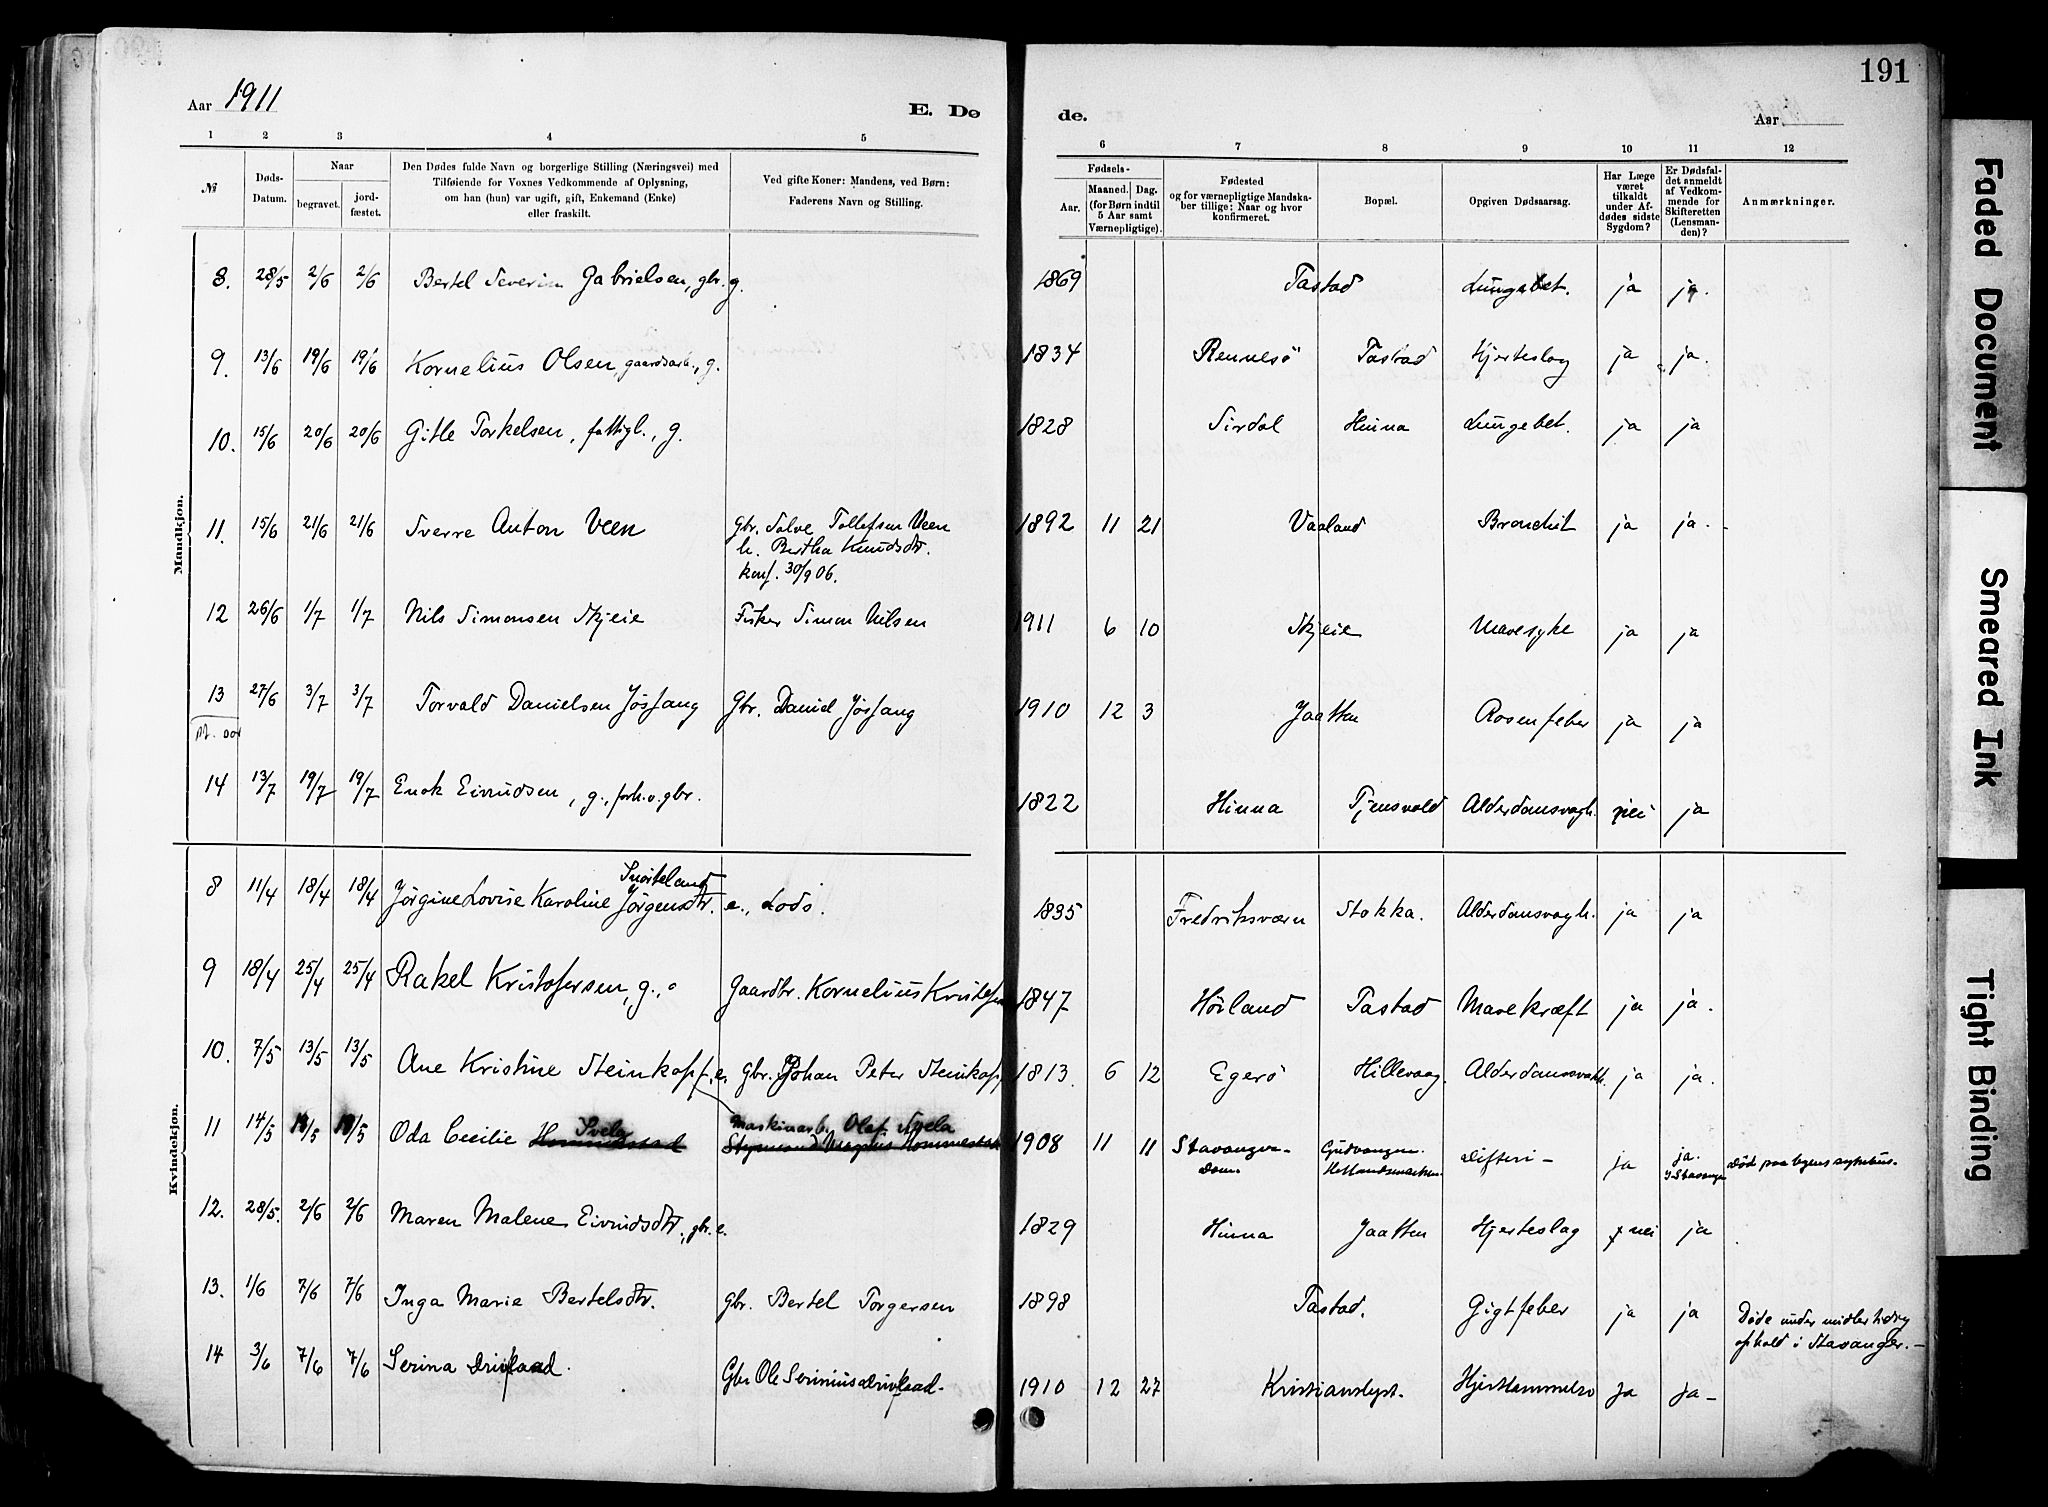 191
Aar 1911
E. Dø
de.
Aar
1 2 3 4 5 6 7 8 9 10 11 12
№
Døds-
Datum.
Naar
begravet.
jord-
fæstet.
Den Dødes fulde Navn og borgerlige Stilling (Næringsvei) med
Tilføiende for Voxnes Vedkommende af Oplysning,
om han (hun) var ugift, gift, Enkemand (Enke)
eller fraskilt.
Ved gifte Koner: Mandens, ved Børn:
Faderens Navn og Stilling.
Fødsels-
Aar.
Maaned. Dag.
(for Børn indtil
5 Aar samt
Værnepligtige).
Fødested
og for værnepligtige Mandska-
ber tillige: Naar og hvor
konfirmeret.
Bopæl.
Opgiven Dødsaarsag.
Har Læge
været
tilkaldt
under Af-
dødes sidste
Sygdom?
Er Dødsfal-
det anmeldt
af Vedkom-
mende for
Skifteretten
(Lensman-
den)?
Anmærkninger.
Mandkjøn.
8. 28/5 2/6 2/6 Bertel Severin Gabrielsen, gbr. g. 1869 Tastad Lungebet. ja ja.
9. 13/6 19/6 19/6 Kornelius Olsen, gaardsarb., g. 1834 Rennesö Tastad Hjerteslag ja ja.
10. 15/6 20/6 20/6 Gitle Torkelsen, fattigl., g. 1828 Sirdal Hinna Lungebet. ja ja
11. 15/6 21/6 21/6 Sverre Anton Veen Gbr. Salve Tollefsen Veen 1892 11 21 Vaaland Bronchit ja ja.
h. Bertha Knudsdtr.
konf. 30/9 06.
12 26/6 1/7 1/7 Nils Simonsen Skjeie Fisker Simon Nilsen 1911 6 10 Skjeie Mavesyke ja ja
13 27/6 3/7 3/7 Torvald Danielsen Jössang Gbr. Daniel Jössang 1910 12 3 Jaatten Rosenfeber ja ja
14 13/7 19/7 19/7 Enok Eivindsen, g., forh. v. gbr. 1822 Hinna Tjensvold Alderdomsvagh. nei ja
Kvindekjøn.
8 11/4 18/4 18/4 Jörgine Lovise Karoline Jörgensdtr. e., Lods. 1835 Fredriksværn Stokka. Alderdomsvagh. ja ja
9 18/4 25/4 25/4 Rakel Kristofersen, g., Gaardbr. Kornelius Kristofersen 1847 Höiland Tastad Mavekræft ja ja.
10. 7/5 13/5 13/5 Ane Kristine Steinkopf, e. gbr. Johan Peter Steinkopf 1813 6 12 Egerö Hillevaag. Alderdomssvakh. ja ja.
Svela Maskinarb. Olaf Svela
11 14/5 18/5 18/5 Oda Cecilie Hommestad 1908 11 11 Stavanger Difteri - ja ja.
Dom. Hetlandsmarken I Stavanger Död paa byens sykehus.
12. 28/5. 2/6 2/6 Maren Malene Eivindsdtr., gbr. e. 1829 Hinna Jaatten Hjerteslag nei ja
13. 1/6 7/6 7/6 Inga Marie Bertelsdtr. Gbr. Bertel Torgersen 1898 Tastad. Gigtfeber ja ja Döde under midlertidig
ophold i Stavanger. -
14 3/6 7/6 7/6 Serina Driflaad. Gbr Ole Serinius Driflaad. 1910 12 27 Kristianslyst. Hjertlammelse ja ja -
Faded Document
Smeared Ink
Tight Binding